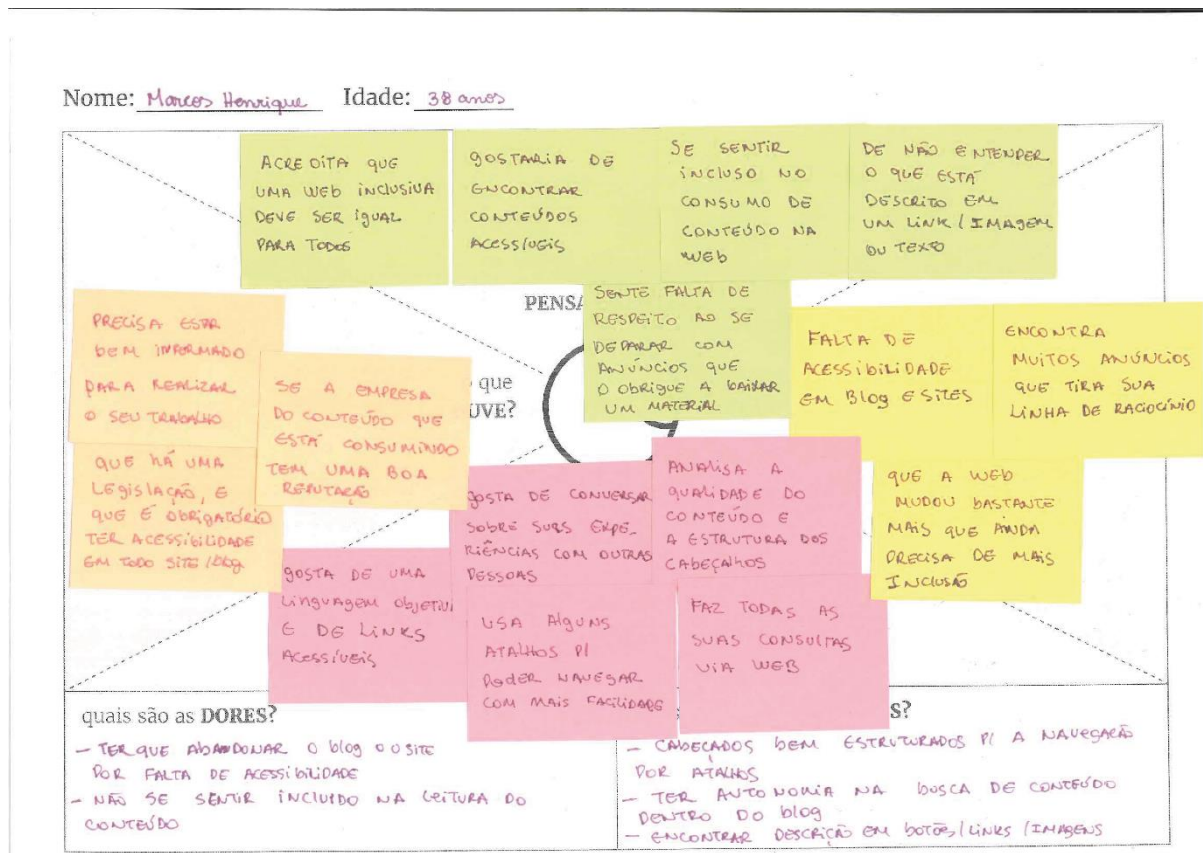 Nome: Marcos Henrique Idade: 38 anos
ACREDITA QUE
UMA WEB INCLUSIVA
DEVE SER IGUAL
PARA TODOS
GOSTARIA DE
ENCONTRAR
CONTEÚDOS
ACESSÍVEIS
SE SENTIR
INCLUSO NO
CONSUMO DE
CONTEÚDO NA
WEB
DE NÃO ENTENDER
O QUE ESTÁ
DESCRITO EM
UM LINK/IMAGEM
OU TEXTO
PENSA
SENTE FALTA DE
RESPEITO AO SE
DEPARAR COM
ANÚNCIOS QUE
O OBRIGUE A BAIXAR
UM MATERIAL
PRECISA ESTAR
BEM INFORMADO
PARA REALIZAR
O SEU TRABALHO
SE A EMPRESA
DO CONTEÚDO QUE
ESTÁ CONSUMINDO
TEM UMA BOA
REPUTAÇÃO
QUE HÁ UMA
LEGISLAÇÃO, E
QUE É OBRIGATÓRIO
TER ACESSIBILIDADE
EM TODO SITE/blog
que
UVE?
FALTA DE
ACESSIBILIDADE
EM Blog E SITES
ENCONTRA
MUITOS ANÚNCIOS
QUE TIRA SUA
LINHA DE RACIOCÍNIO
QUE A WEB
MUDOU BASTANTE
MAIS QUE AINDA
PRECISA DE MAIS
INCLUSÃO
GOSTA DE CONVERSAR
SOBRE SUAS EXPE-
RIÊNCIAS COM OUTRAS
PESSOAS
ANALISA A
QUALIDADE DO
CONTEÚDO E
A ESTRUTURA DOS
CABEÇALHOS
GOSTA DE UMA
LINGUAGEM OBJETIVA
E DE LINKS
ACESSÍVEIS
USA ALGUNS
ATALHOS P/
PODER NAVEGAR
COM MAIS FACILIDADE
FAZ TODAS AS
SUAS CONSULTAS
VIA WEB
quais são as DORES?
- TER QUE ABANDONAR O blog O O SITE
POR FALTA DE ACESSIBILIDADE
- NÃO SE SENTIR INCLUIDO NA LEITURA DO
CONTEÚDO
S?
- CABEÇADOS BEM ESTRUTURADOS P/ A NAVEGAÇÃO
POR ATALHOS
- TER AUTONOMIA NA BUSCA DE CONTEÚDO
DENTRO DO blog
- ENCONTRAR DESCRIÇÃO EM BOTÕES/LINKS/IMAGENS